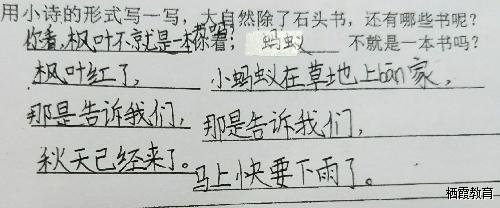 用小诗的形式写一写，大自然除了石头书，还有哪些书呢？
你看，枫叶不就是一本书吗？你看，蚂蚁不就是一本书吗？
枫叶红了，小蚂蚁在草地上bān家，
那是告诉我们，那是告诉我们，
秋天已经来了。马上快要下雨了。
栖霞教育